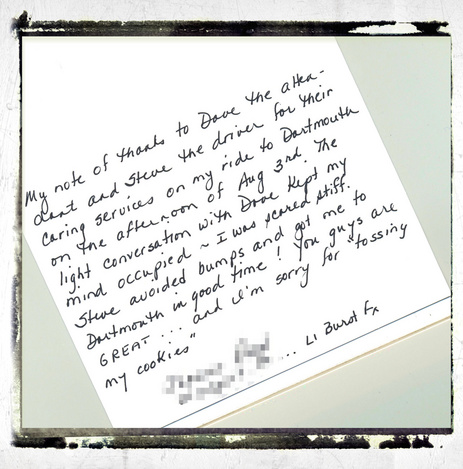 My note of thanks to Dave the atten-
dant and Steve the driver for their
caring services on my ride to Dartmouth
on the afternoon of Aug 3rd. The
light conversation with Dave kept my
mind occupied ~ I was scared stiff.
Steve avoided bumps and got me to
Dartmouth in good time! You guys are
GREAT .... and I'm sorry for "tossing
my cookies"
.... L1 Burst Fx